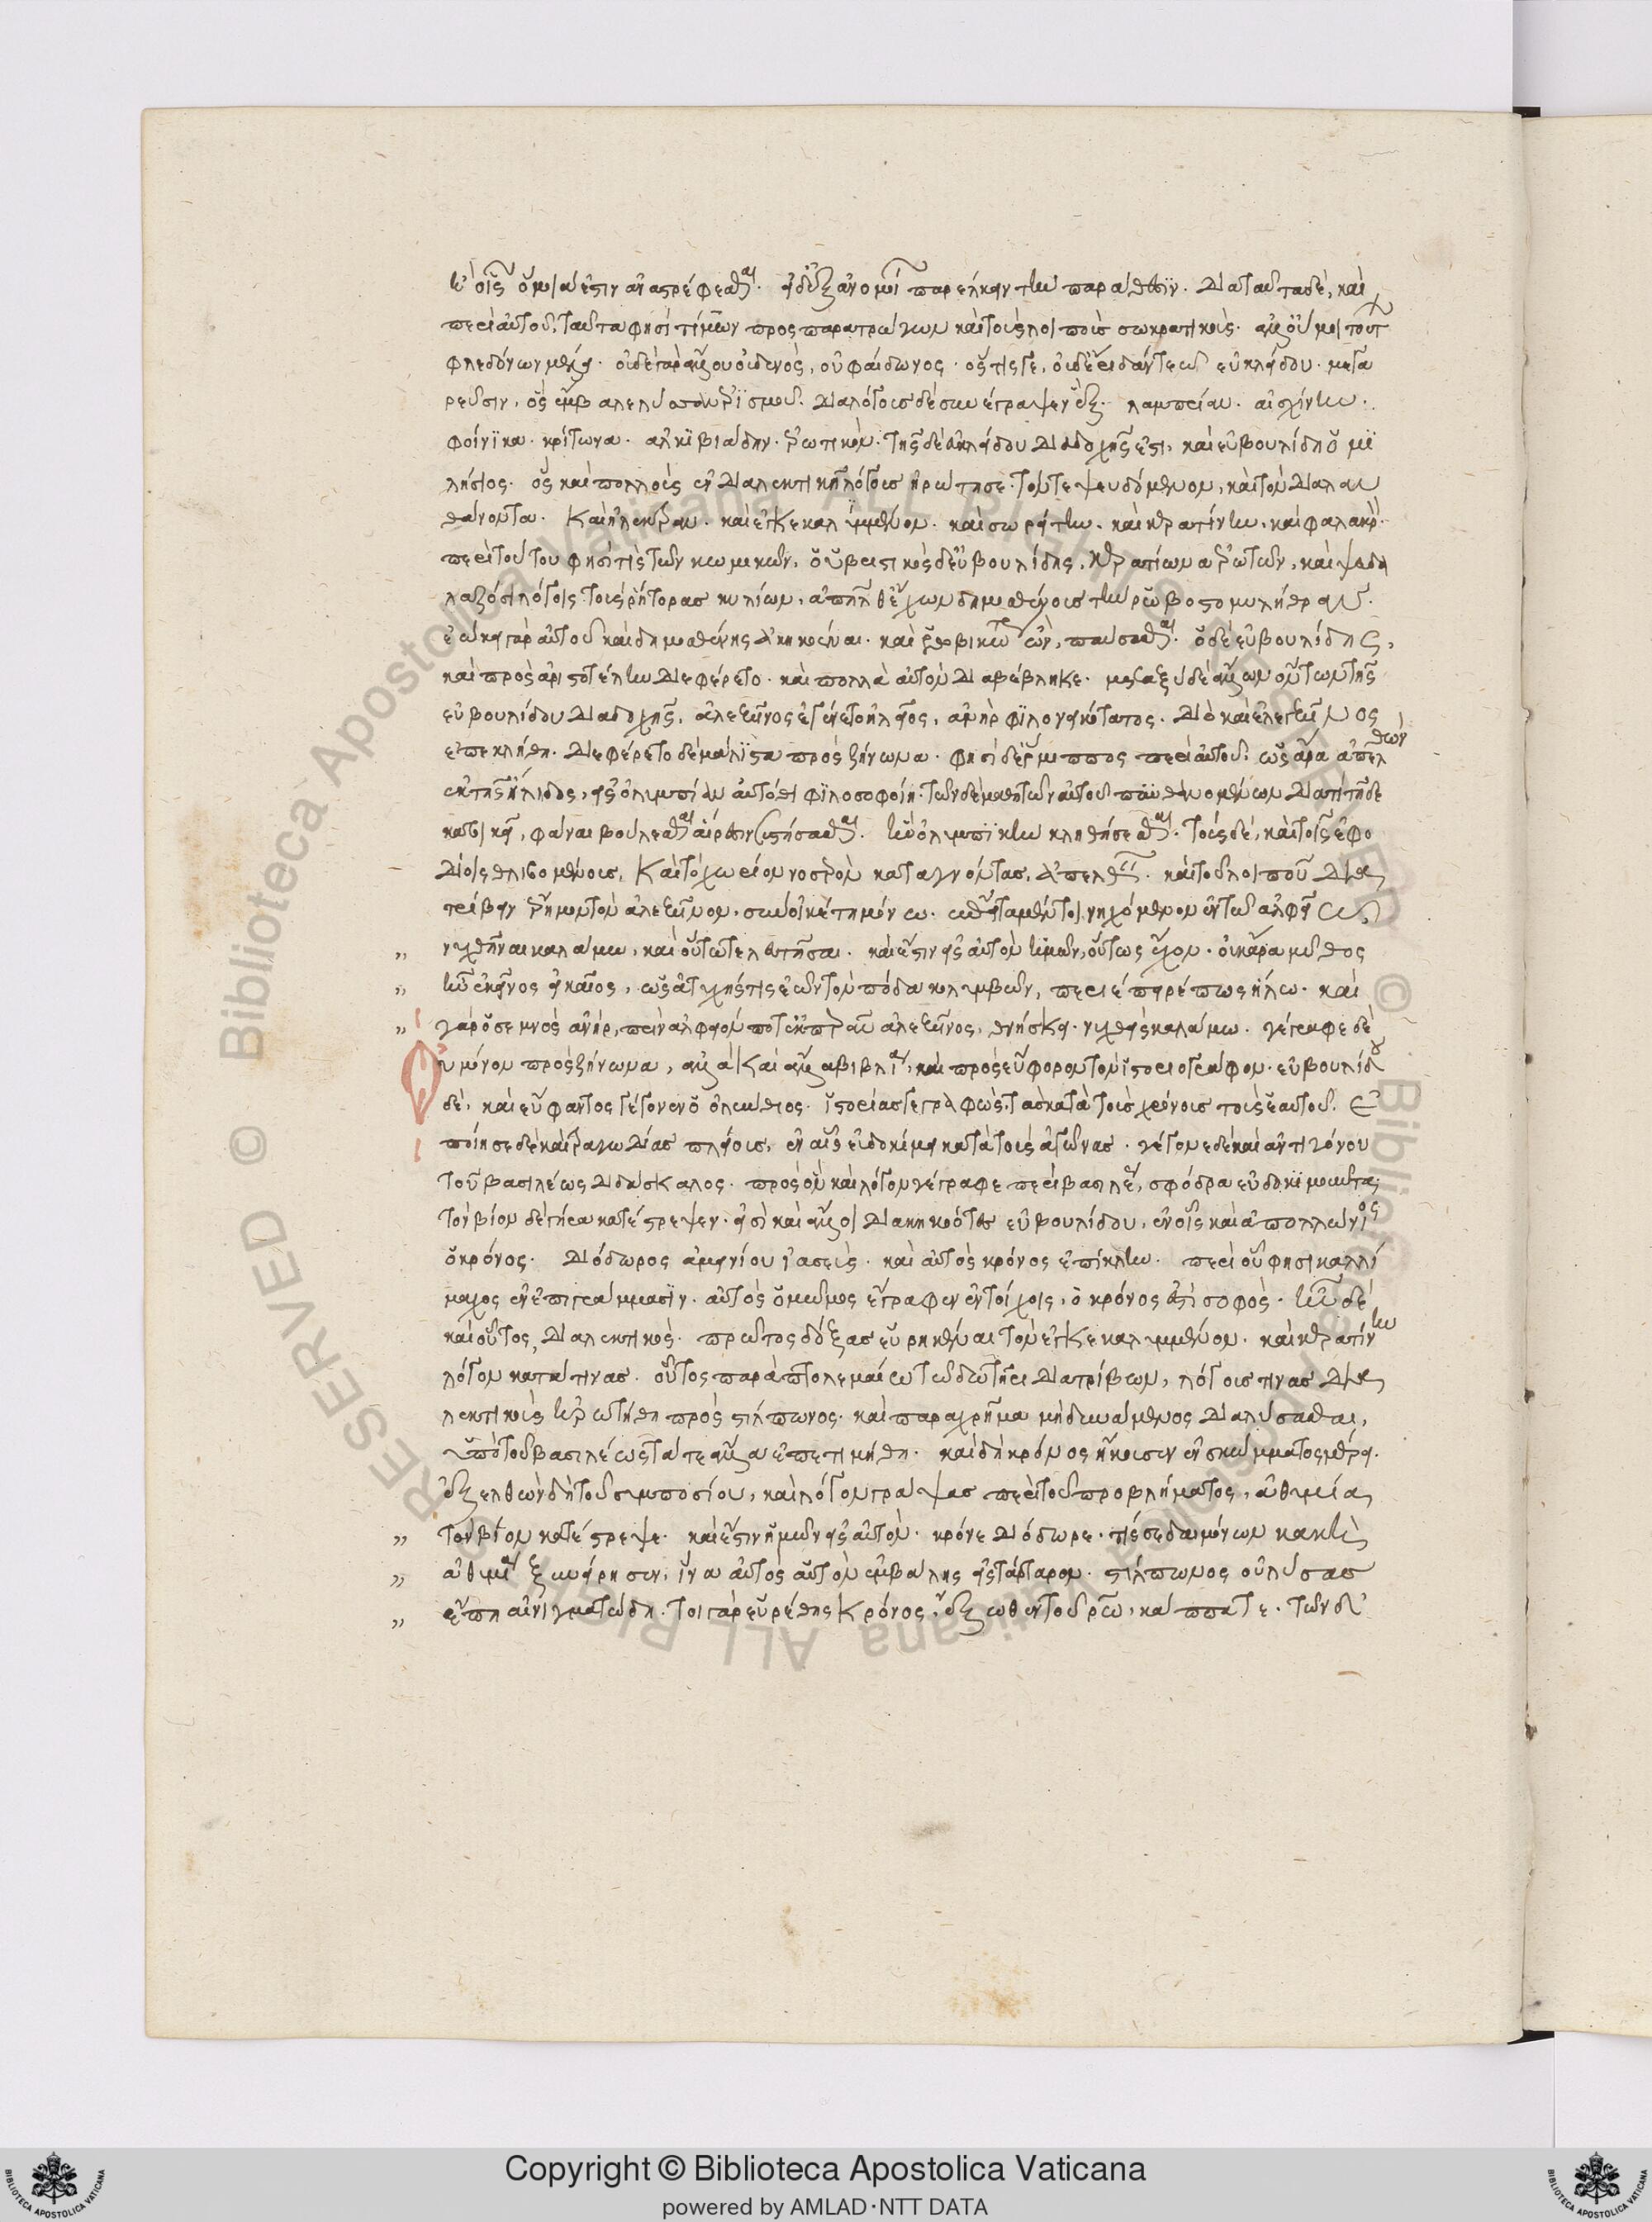 ἢ οἷς ὅμοιά ἐστιν ἀναστρέφεσθαι· εἰ δ' ἐξ ἀνομοίων παρέλκειν τὴν παράθεσιν. διὰ ταῦτα δὲ, καὶ
περὶ αὐτοῦ, ταῦτα φησὶ τίμων προσπαρατρώγων καὶ τοὺς λοιποὺς σωκρατικούς. ἀλλ' οὔ μοι τούτων
φλεδόνων μέλει. οὐδὲ γὰρ ἄλλου οὐδενὸς, οὐ φαίδωνος. ὅστις γε, οὐδ' ἐριδάντεω εὐκλείδου. μεγα
ρεῦσιν, ὃς ἔμβαλε λύσσαν ἐρισμοῦ. διαλόγους δὲ συνέγραψεν ἕξ. λαμπρίαν. αἰσχίνην.
φοίνικα. κρίτωνα. ἀλκιβιάδην. ἐρωτικόν. τῆς δὲ εὐκλείδου διαδοχῆς ἐστι, καὶ εὐβουλίδης ὁ μι
λήσιος. ὃς καὶ πολλοὺς ἐν διαλεκτικῇ λόγους ἠρώτησε. τόν τε ψευδόμενον, καὶ τὸν διαλαν
θάνοντα. καὶ ἠλέκτραν. καὶ ἐγκεκαλυμμένον. καὶ σωρείτην. καὶ κερατίνην. καὶ φαλακρόν.
περὶ τούτου φησί τις τῶν κωμικῶν. οὑριστικὸς δ' εὐβουλίδης, κερατίνων ἐρωτῶν, καὶ ψευδα
λαζόσι λόγοις τοὺς ῥήτορας κυλίων, ἀπῆλθ' ἔχων δημοσθένους τὴν ῥωβοστομυλήθραν.
ἐῴκει γὰρ αὐτοῦ καὶ δημοσθένης ἀκηκοέναι. καὶ ῥωβικώτερος ὢν, παύσασθαι. ὁ δὲ εὐβουλίδης,
καὶ πρὸς ἀριστοτέλην διεφέρετο. καὶ πολλὰ αὐτὸν διαβέβληκε. μεταξὺ δὲ ἄλλων ὄντων τῆς
εὐβουλίδου διαδοχῆς, ἀλεξῖνος ἐγένετο ἠλεῖος, ἀνὴρ φιλονεικότατος. διὸ καὶ ἐλεγξῖνος
ἐπεκλήθη. διεφέρετο δὲ μάλιστα πρὸς ζήνωνα. φησὶ δ' ἕρμιππος περὶ αὐτοῦ. ὡς ἄρα ἀπελθὼν
ἐκ τῆς ἤλιδος, εἰς ὀλυμπίαν αὐτόθι φιλοσοφοίη. τῶν δὲ μαθητῶν αὐτοῦ πυνθανομένων διὰ τί τῇδε
κατοικεῖ, φάναι βούλεσθαι αἵρεσιν συστήσασθαι. ἣν ὀλυμπικὴν κληθήσεσθαι. τοὺς δὲ, καὶ τοῖς ἐφο
δίοις θλιβομένους, καὶ τὸ χωρίον νοσερὸν καταγνόντας, ἀπελθεῖν. καὶ τὸ λοιποῦ δια
τρίβειν ἔρημον τὸν ἀλεξῖνον, σὺν οἰκέτῃ μόνῳ. ἔπειτα μέντοι νηχόμενον ἐν τῷ ἀλφειῷ,
„ νυχθῆναι καλάμῳ, καὶ οὕτω τελευτῆσαι. καὶ ἔστιν εἰς αὐτὸν ἡμῶν, οὕτως ἔχον. οὐκ ἄρα μῦθος
„ ἦν ἐκεῖνος εἰκαῖος, ὡς ἀτυχής τις ἐὼν τὸν πόδα κολυμβῶν, περιέπειρέ πως ἥλῳ. καὶ
„ γὰρ ὁ σεμνὸς ἀνὴρ, πρὶν ἀλφειόν ποτ' ἐκπερᾶν ἀλεξῖνος, θνήσκει. νυχθεὶς καλάμῳ. γέγραφε δὲ
Οὐ μόνον πρὸς ζήνωνα, ἀλλὰ καὶ ἄλλα βιβλία, καὶ πρὸς ἔφορον τὸν ἱστοριογράφον. εὐβουλίδου
δὲ, καὶ εὔφαντος γέγονεν ὁ ὀλύνθιος. ἱστορίας γεγραφὼς, τὰς κατὰ τοὺς χρόνους τοὺς ἑαυτοῦ. ἐ
ποίησε δὲ καὶ τραγῳδίας πλείους, ἐν αἷς εὐδοκίμει κατὰ τοὺς ἀγῶνας. γέγονε δὲ καὶ ἀντιγόνου
τοῦ βασιλέως διδάσκαλος. πρὸς ὃν καὶ λόγον γέγραφε περὶ βασιλείας, σφόδρα εὐδοκιμοῦντα.
τὸν βίον δὲ γήρᾳ κατέστρεψεν. εἰσὶ καὶ ἄλλοι διακηκοότες εὐβουλίδου, ἐν οἷς καὶ ἀπολλώνιος
ὁ κρόνος. διόδωρος ἀμεινίου ἰασεὺς. καὶ αὐτὸς κρόνος ἐπίκλην. περὶ οὗ φησι καλλί
μαχος ἐν ἐπιγράμμασιν. αὐτὸς ὁ μῶμος ἔγραφεν ἐν τοίχοις, ὁ κρόνος ἐστὶ σοφός. ἦν δὲ
καὶ οὗτος, διαλεκτικός. πρῶτος δόξας εὑρηκέναι τὸν ἐγκεκαλυμμένον. καὶ κερατίνην
λόγον κατά τινας. οὗτος παρὰ πτολεμαίῳ τῷ σωτῆρι διατρίβων, λόγους τινὰς δια
λεκτικοὺς ἠρωτήθη πρὸς στίλπωνος. καὶ παραχρῆμα μὴ δυνάμενος διαλύσασθαι,
ὑπὸ τοῦ βασιλέως τά τε ἄλλα ἐπετιμήθη. καὶ δὴ κρόνος ἤκουσεν ἐν σκώμματος μέρει.
ἐξελθὼν δὴ τοῦ συμποσίου, καὶ λόγον γράψας περὶ τοῦ προβλήματος, ἀθυμίᾳ
„ τὸν βίον κατέστρεψε. καὶ ἔστιν ἡμῶν εἰς αὐτόν. κρόνε διόδωρε. τίς σε δαιμόνων κακῇ
„ ἀθυμίῃ ξυνείρησεν. ἵνα αὐτὸς αὑτὸν ἐμβάλῃς εἰς τάρταρον. στίλπωνος οὐ λύσας
„ ἔπη αἰνιγματώδη. τοιγὰρ εὑρέθης κρόνος, ἔξωθεν τοῦ ῥῶ, κάππα τε. τῶν δ'